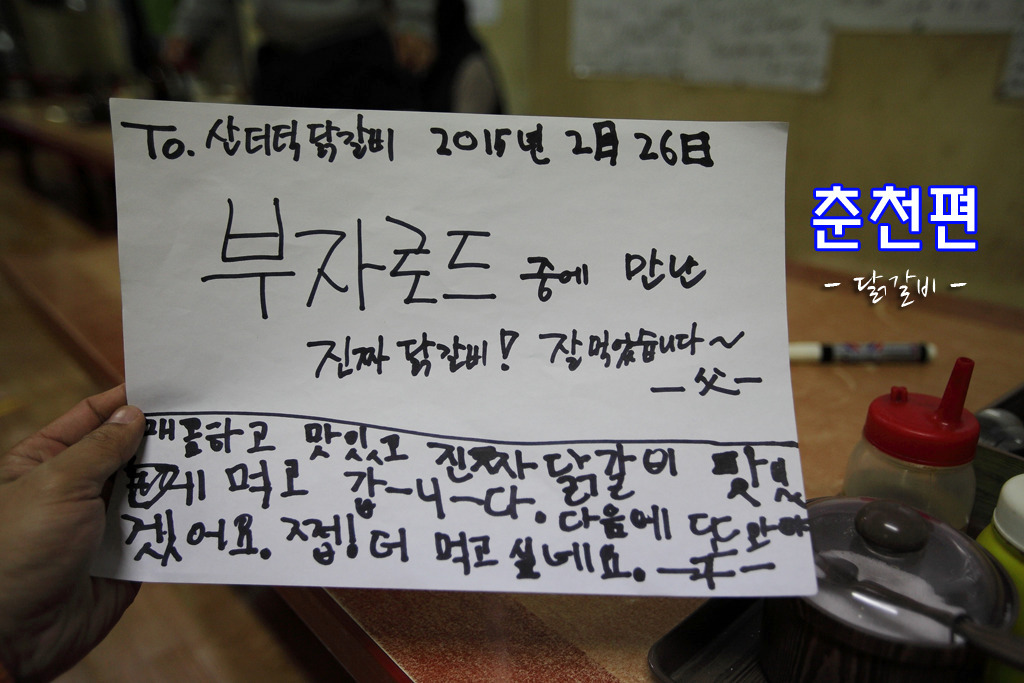 To. 산더덕닭갈비 2015년 2月 26日
부자로드 중에 만난
진짜 닭갈비! 잘먹었습니다~
- 父 -
매콤하고 맛있고 진짜 닭갈비 맛있
게 먹고 갑-니-다. 다음에 또 와야
겠어요. 쩝! 더 먹고 싶네요. - 子 -
춘천편
- 닭갈비 -